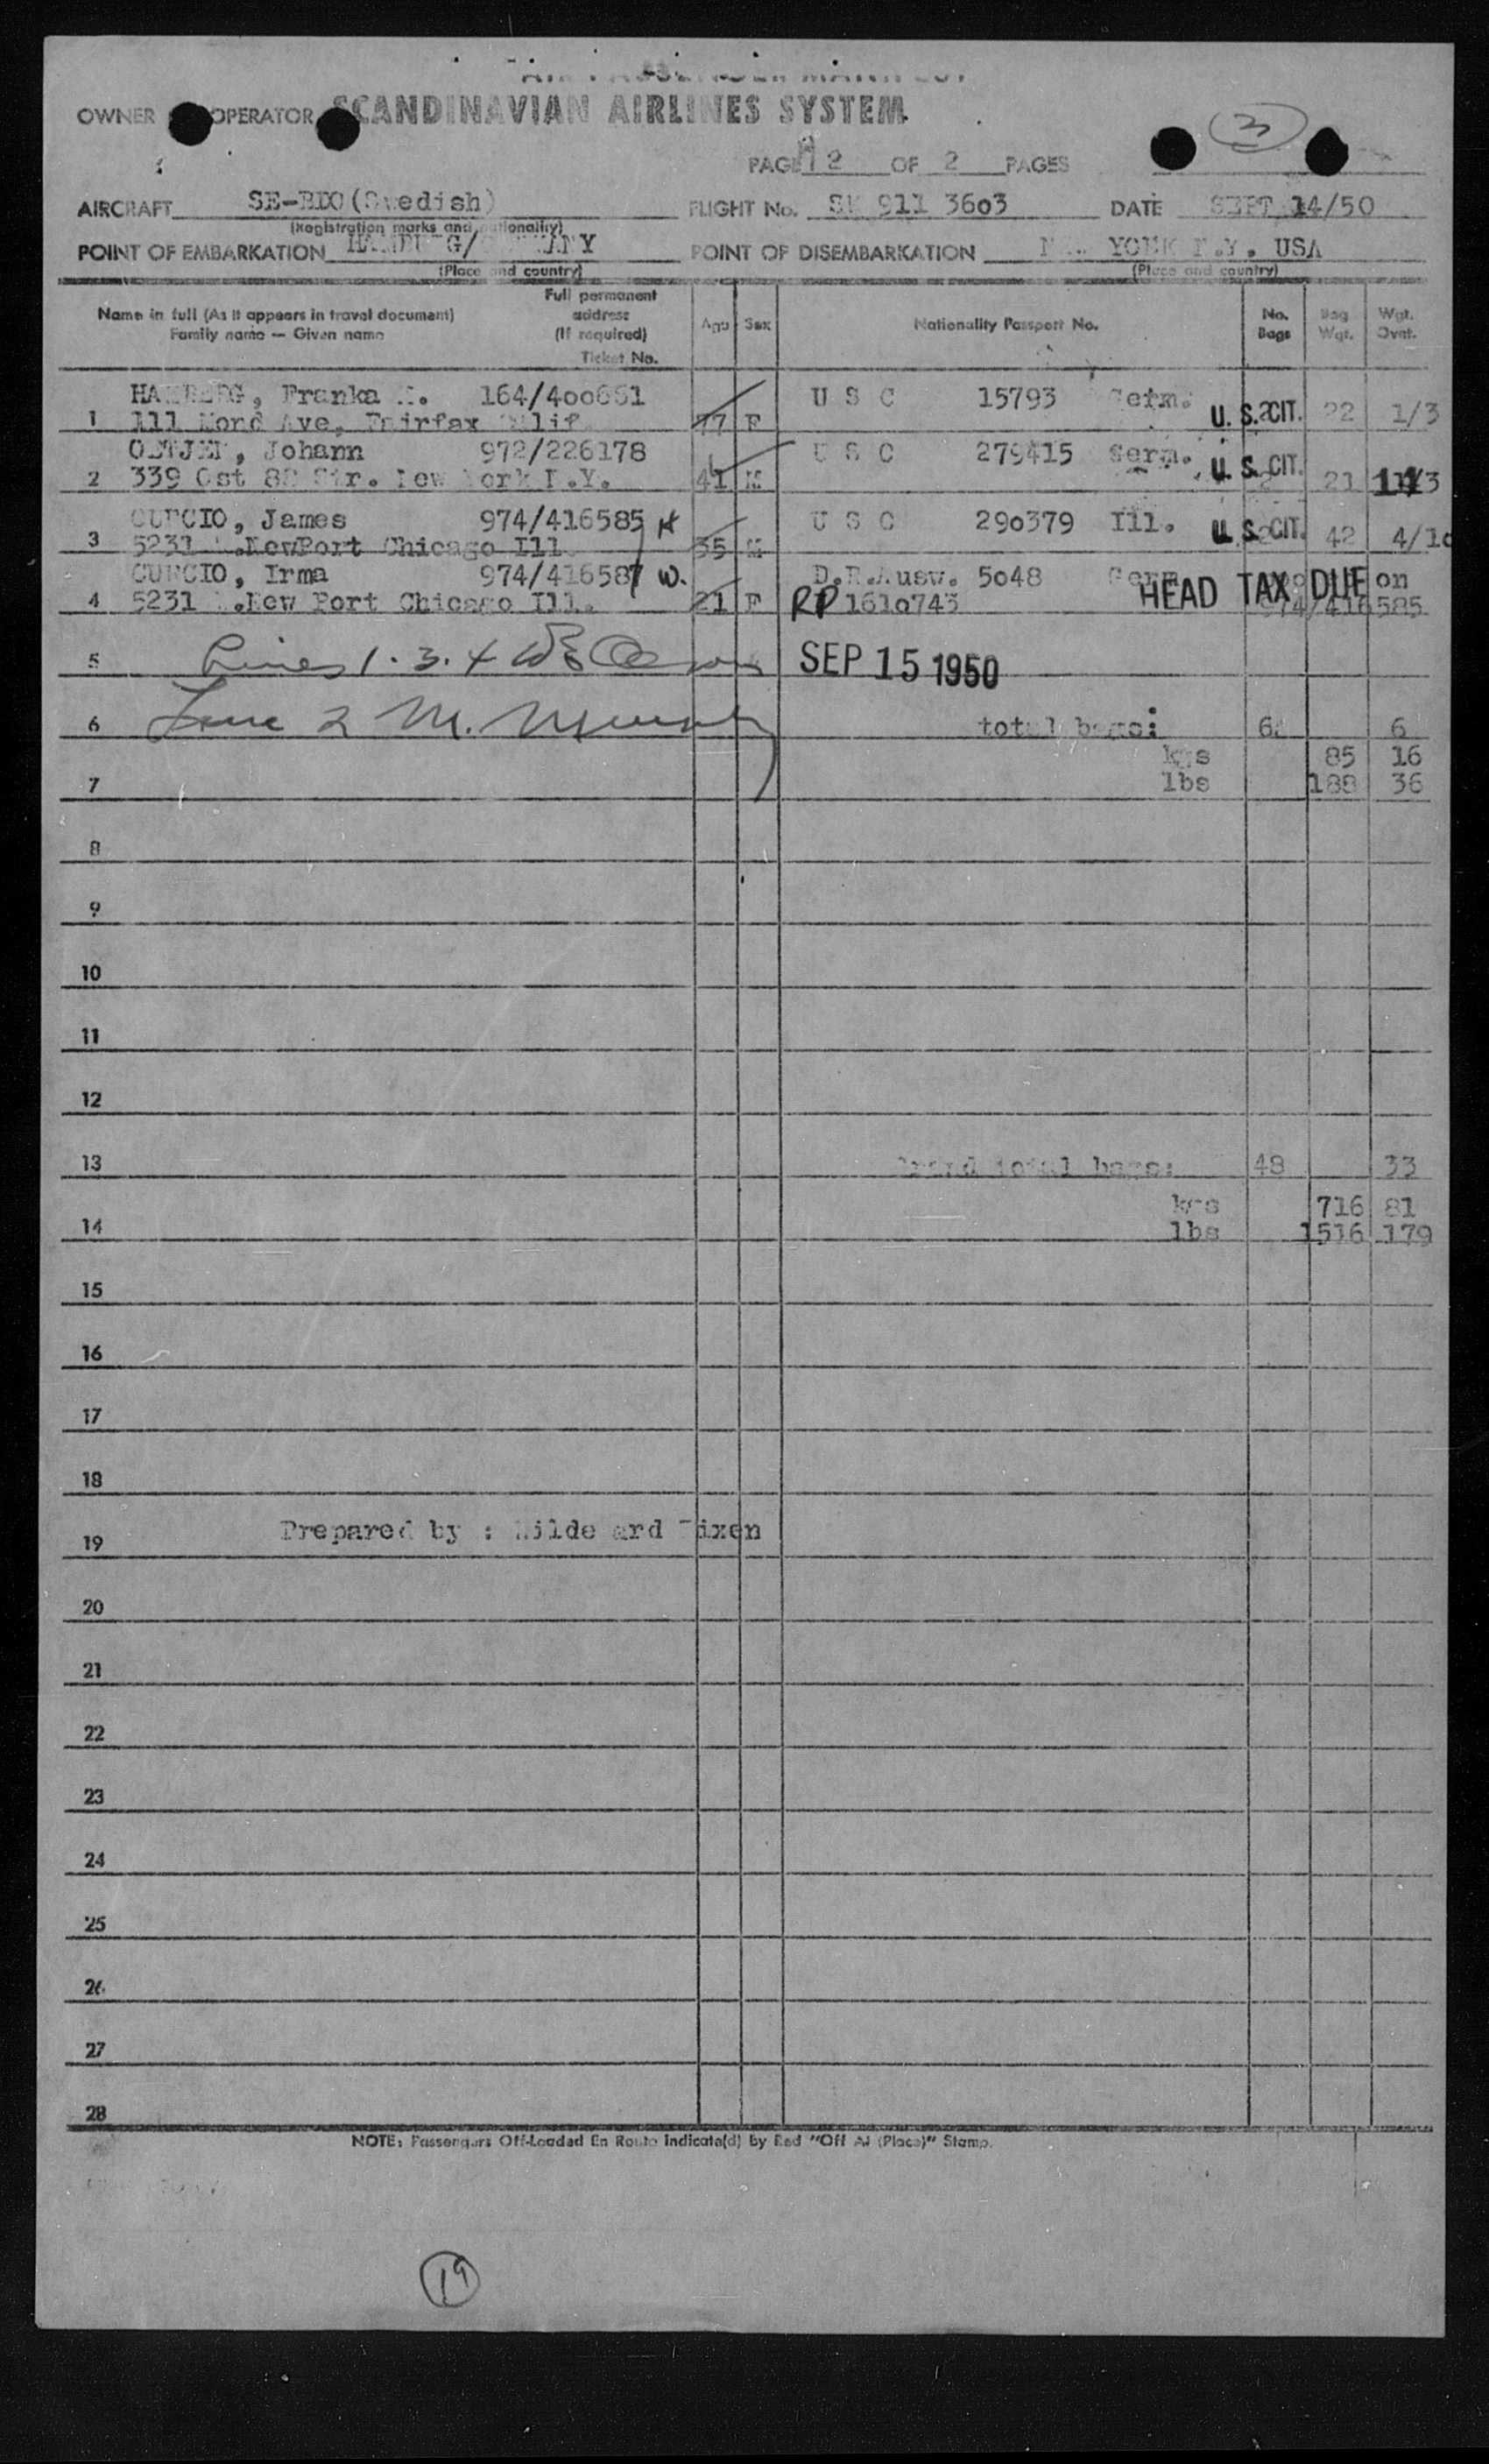 AIR PASSENGER MANIFEST
OWNER OPERATOR SCANDINAVIAN AIRLINES SYSTEM
3
PAGE 2 OF 2 PAGES
AIRCRAFT (Swedish) FLIGHT No. SK 911 3603 DATE SEPT 14/50
(Registration marks and nationality)
POINT OF EMBARKATION HAMBURG/GERMANY POINT OF DISEMBARKATION NEW YORK N.Y. USA
(Place and country) (Place and country)
Name in full (As it appears in travel document) Family name — Given name Full permanent address (If required) Ticket No. Age Sex Nationality Passport No. No. Bags Bag Wgt. Wgt. Ovnt.
Franka 164/400661 U S C 15793 Germ.
1 111 Ave, Fairfax Calif. 77 F U. S. CIT. 2 22 1/3
Johann 972/226178 U S C 279415 Germ.
2 339 Ost 82 Str. New York N.Y. 41 M U. S. CIT. 2 21
CURCIO, James 974/416585 H U S C 290379 Ill.
3 5231 NewPort Chicago Ill. 35 M U. S. CIT. 2 42 4/10
CURCIO, Irma 974/416587 W. D.P.Ausw. 5048 Germ. HEAD TAX DUE on
4 5231 New Port Chicago Ill. 21 F RP 1610743 974/416585
5 Lines 1. 3. 4 SEP 15 1950
6 Line 2 M. total bags: 6 6
kgs 85 16
7 lbs 188 36
8
9
10
11
12
13 Grand total bags: 48 33
kgs 716 81
14 lbs 1516 179
15
16
17
18
19 Prepared by :
20
21
22
23
24
25
26
27
28
NOTE: Passengers Off-Loaded En Route Indicate(d) by Red "Off At (Place)" Stamp.
19